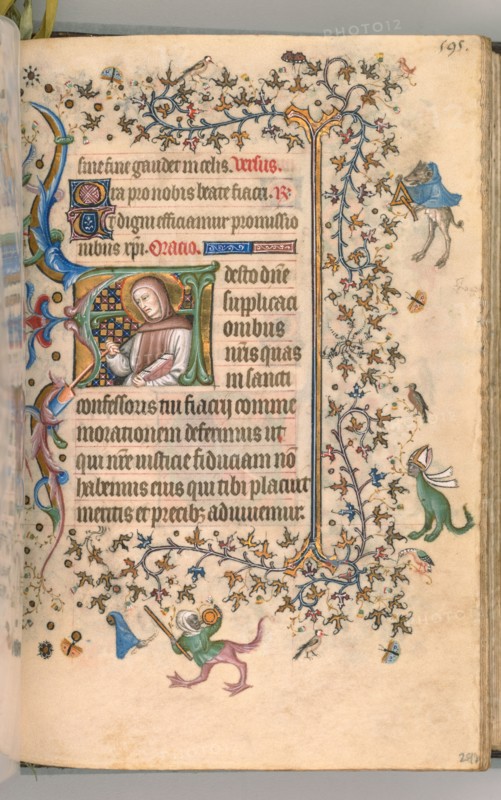 595.
sine fine gaudet in celis. Versus.
Ora pro nobis beate fiacri. R:
Et digni efficiamur promissio
nibus xpi. Oracio.
Adesto dñe
supplicaci
onibus
nr̃is quas
in sancti
confessoris tui fiacrij comme
morationem deferimus ut
qui nr̃e iusticie fiduciam nō
habemus eius qui tibi placuit
meritis et precibꝫ adiuuemur.
PHOTO12